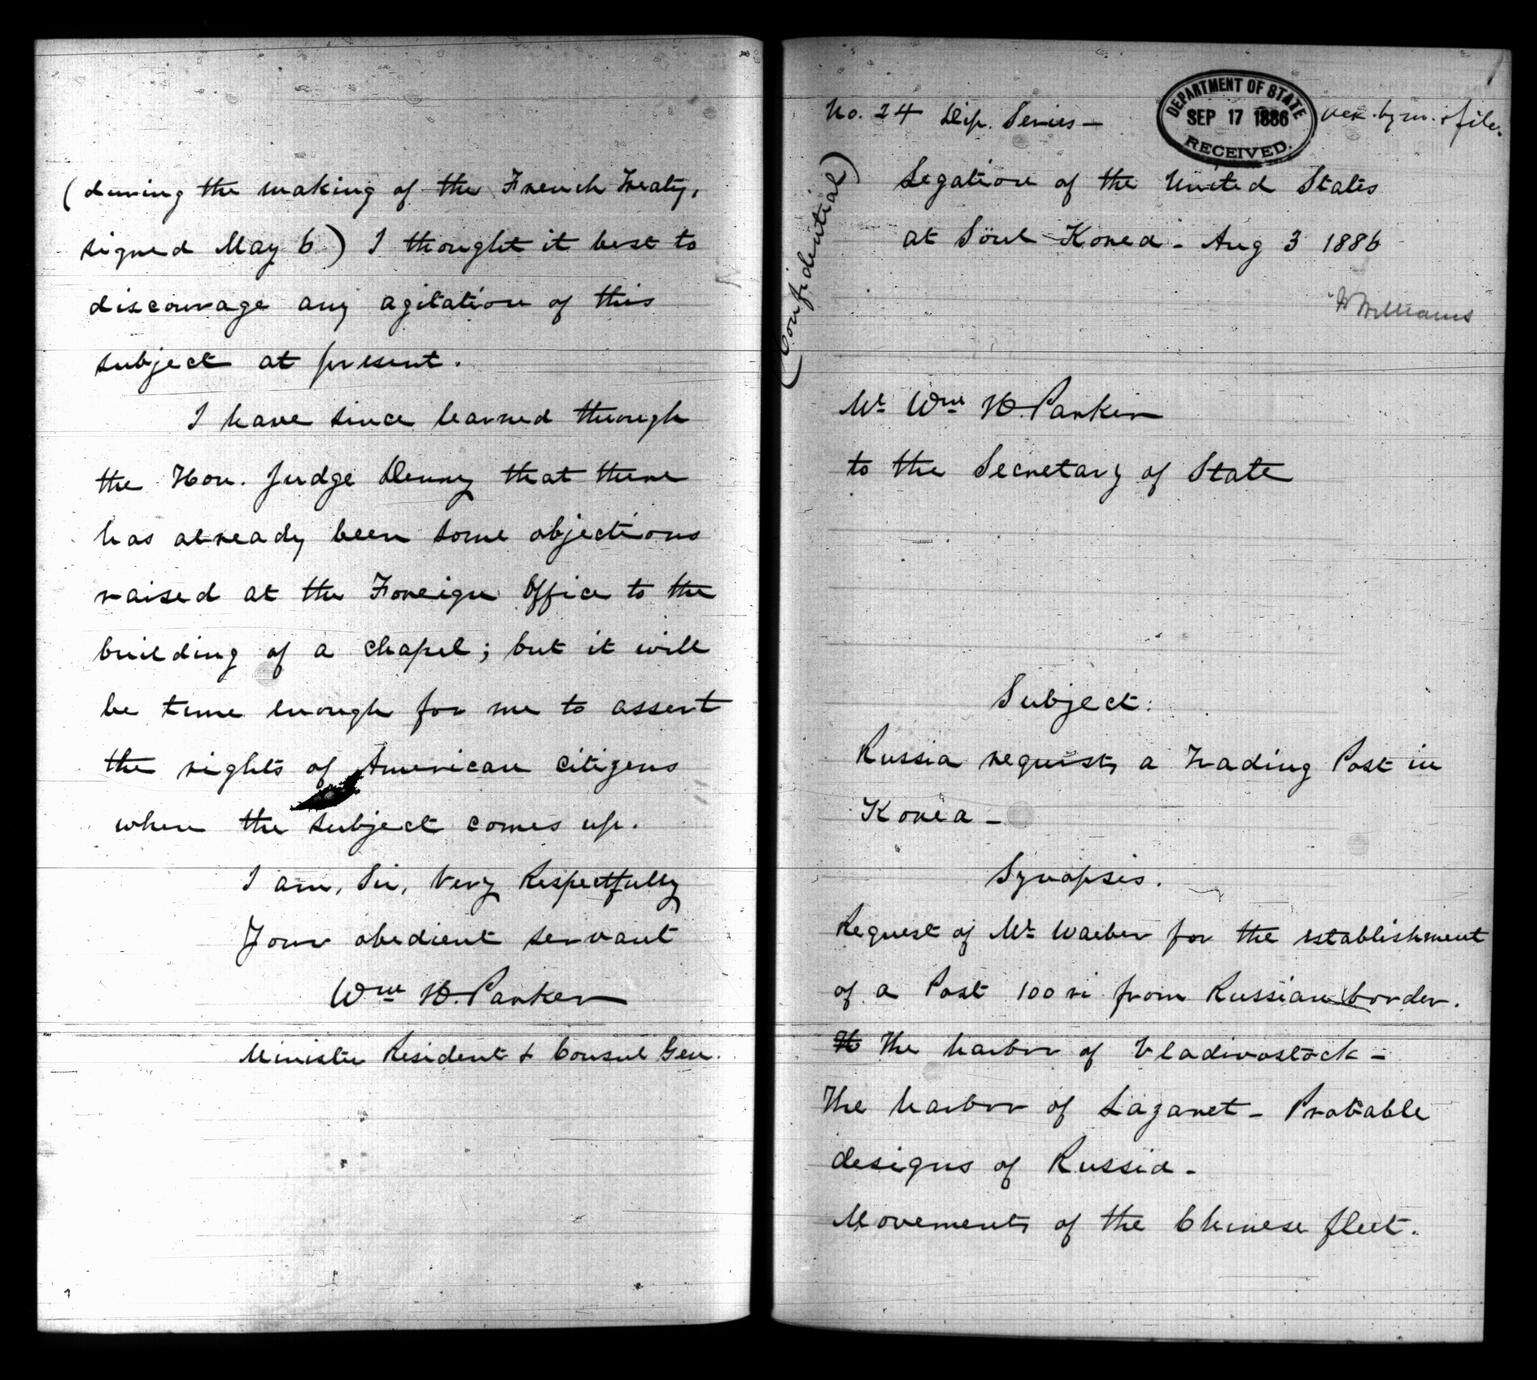 (during the making of the French Treaty,
signed May 6) I thought it best to
discourage any agitation of this
subject at present.
I have since learned through
the Hon. Judge Denny that there
has already been some objections
raised at the Foreign Office to the
building of a chapel; but it will
be time enough for me to assert
the rights of American citizens
when the subject comes up.
I am, Sir, Very Respectfully
Your obedient servant
Wm H. Parker
Minister Resident & Consul Gen.
No. 24 Dip. Series—
DEPARTMENT OF STATE
SEP 17 1886
RECEIVED.
Ack. by m. & file.
(Confidential)
Legation of the United States
at Söul Korea - Aug 3 1886
Williams
Mr Wm H. Parker
to the Secretary of State
Subject:
Russia requests a Trading Post in
Korea —
Synopsis.
Request of Mr Waeber for the establishment
of a Post 100 ri from Russian border.
The harbor of Vladivostock —
The harbor of Lazaret — Probable
designs of Russia -
Movements of the Chinese fleet.